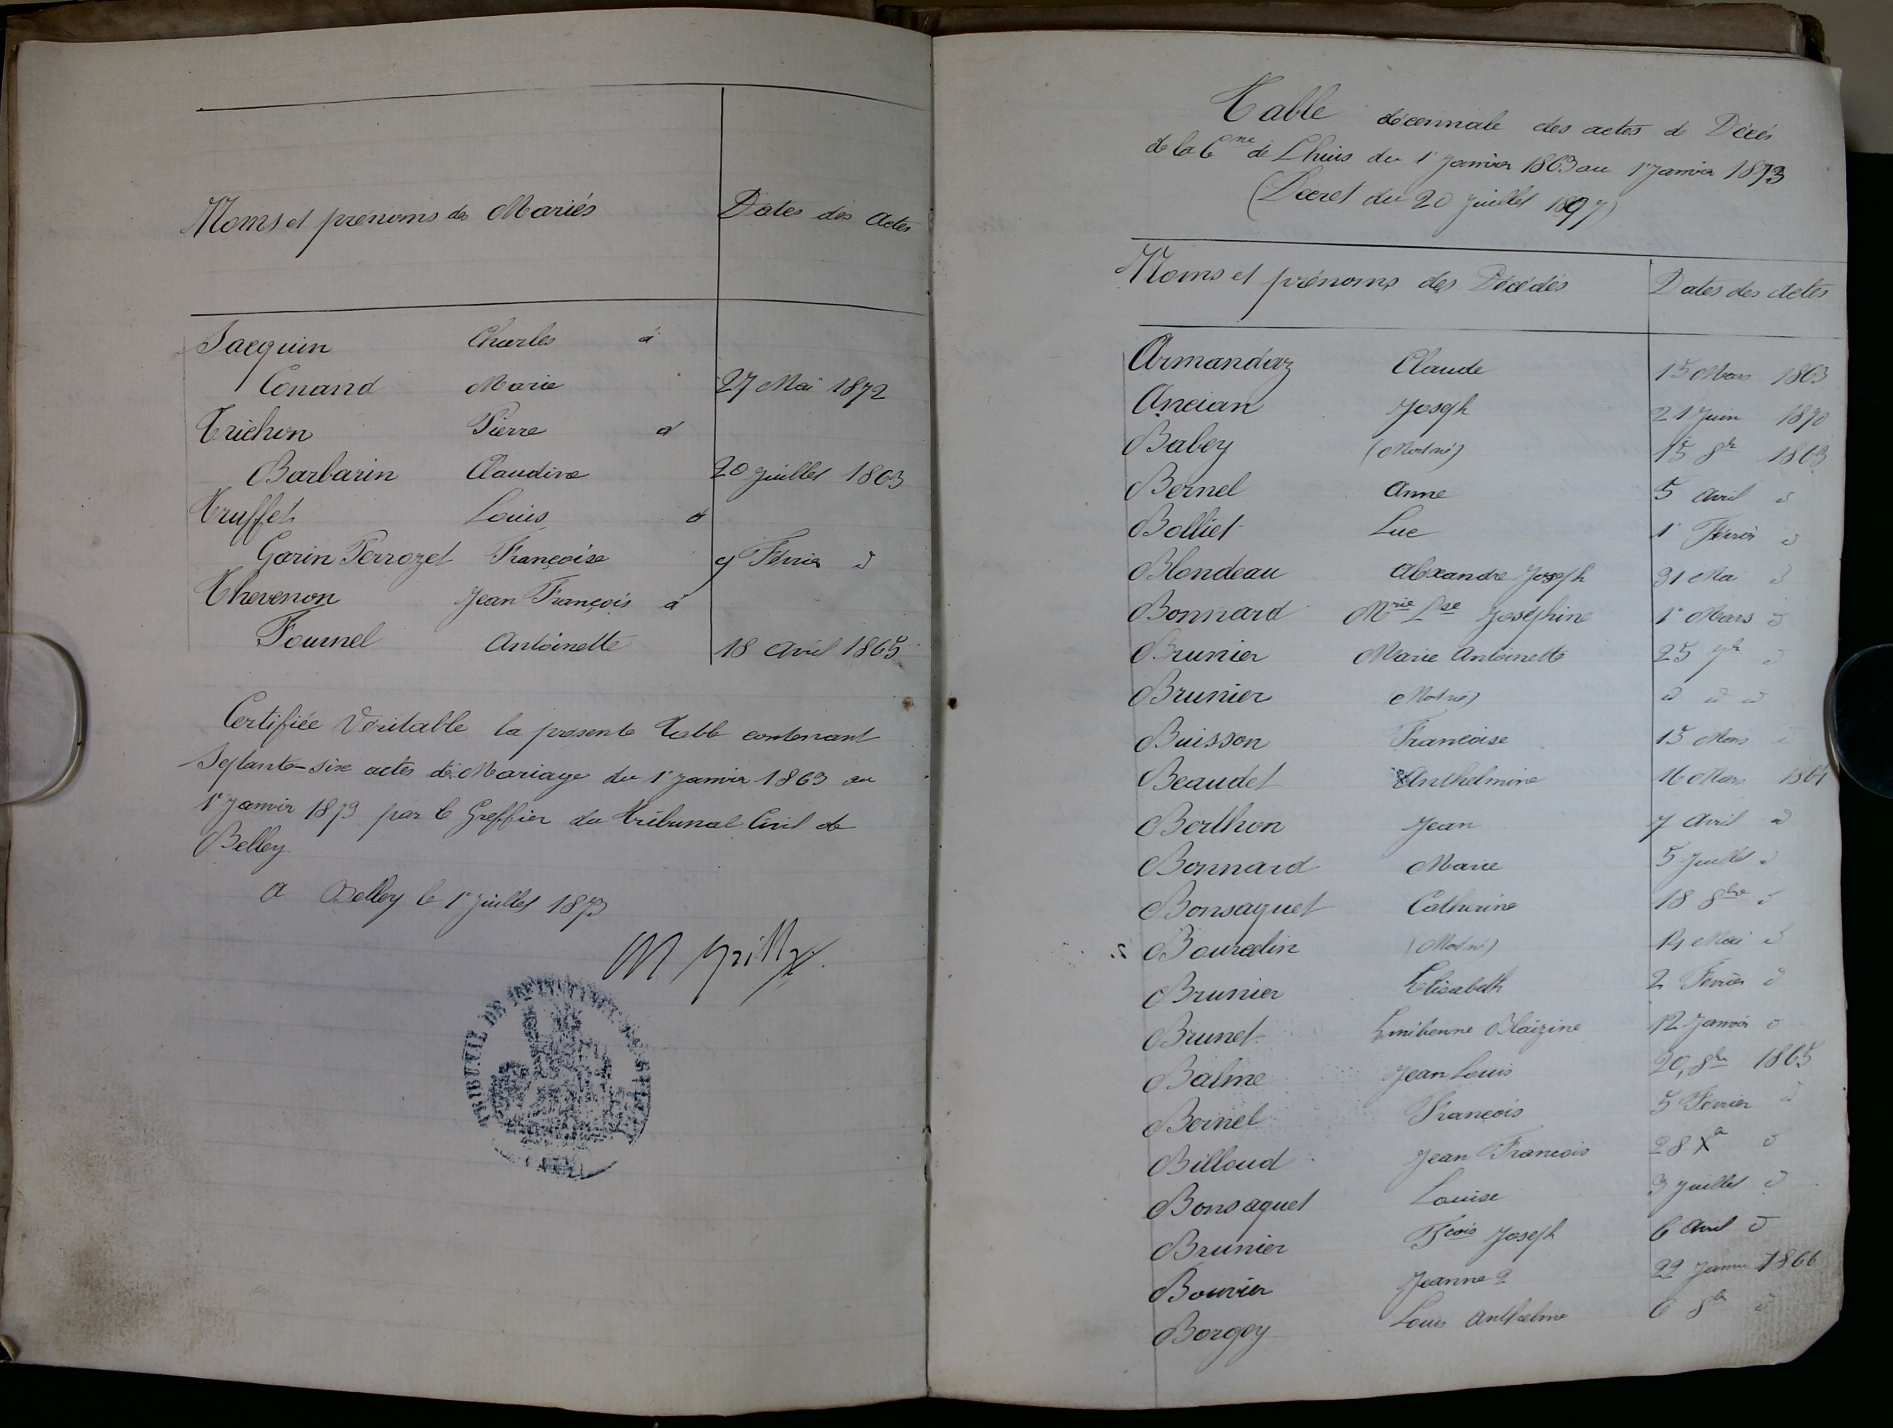 Noms et prénoms des Mariés Dates des Actes
Jacquin Charles à
Conand Marie 27 Mai 1872
Trichon Pierre à
Barbarin Claudine 20 Juillet 1863
Truffet Louis à
Gorin Perrozet Françoise 9 Février d
Thevenon Jean François à
Fournel Antoinette 18 Avril 1865
Certifiée Véritable la présente Table contenant
Septante-six actes de Mariage du 1r Janvier 1863 au
1r Janvier 1873 par le Greffier du Tribunal Civil de
Belley
A Belley le 1r Juillet 1873
TRIBUNAL DE
Table décennale des actes de Décès
de la Cne de Lhuis du 1r Janvier 1863 au 1r Janvier 1873
(Décret du 20 Juillet 1807)
Noms et prénoms des Décédés Dates des Actes
Armandaz Claude 15 Mars 1863
Ancian Joseph 21 Juin 1870
Babey (Mort né) 15 8bre 1863
Bernel Anne 5 Avril d
Bolliet Luc 1r Février d
Blondeau Alexandre Joseph 31 Mai d
Bonnard Mrie Lse Joséphine 1r Mars d
Brunier Marie Antoinette 25 d
Brunier (Mort né) d d d
Buisson Françoise 15 Mars d
Beaudet Anthelmine 16 Mars 1864
Berthon Jean 7 Avril d
Bonnard Marie 5 Juillet d
Bonsaquet Catherine 18 8bre d
Bourdin (Mort né) 14 Mai d
Brunier Elisabeth 2 Février d
Brunet Emilienne Blaizine 12 Janvier d
Balme Jean Louis 20 8bre 1865
Bernel François 5 Février d
Billoud Jean François 28 Xbre d
Bonsaquet Louise 3 Juillet d
Brunier Fçois Joseph 6 Avril d
Bouvier Jeanne 22 Janvier 1866
Borgey Louis Anthelme 6 8bre d